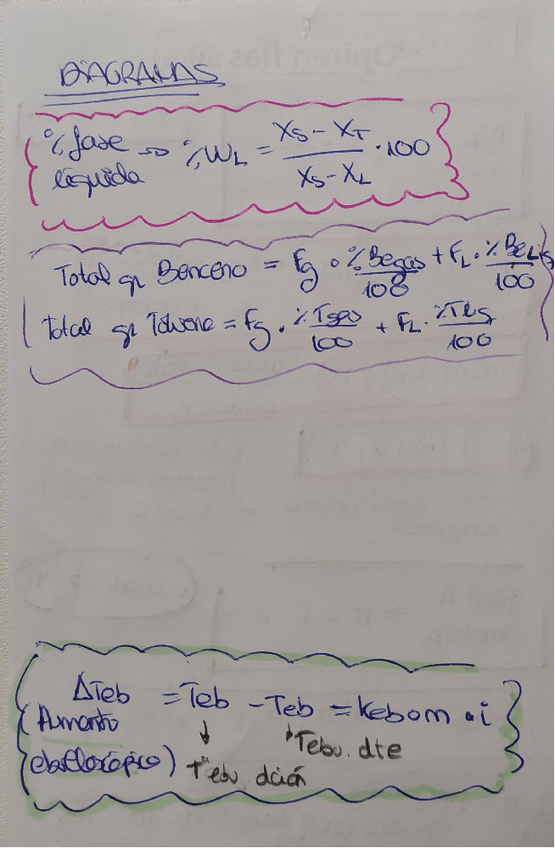 DIAGRAMAS
% fase líquida → %WL = (XS - XT) / (XS - XL) · 100
Total gr Benceno = Fg · %Begas/100 + FL · %BeLiq/100
Total gr Tolueno = Fg · %Tgas/100 + FL · %TLiq/100
ΔTeb = Teb - Teb = Kebom · i
(Aumento
ebulloscópico) Tª ebu. dción Tebu. dte